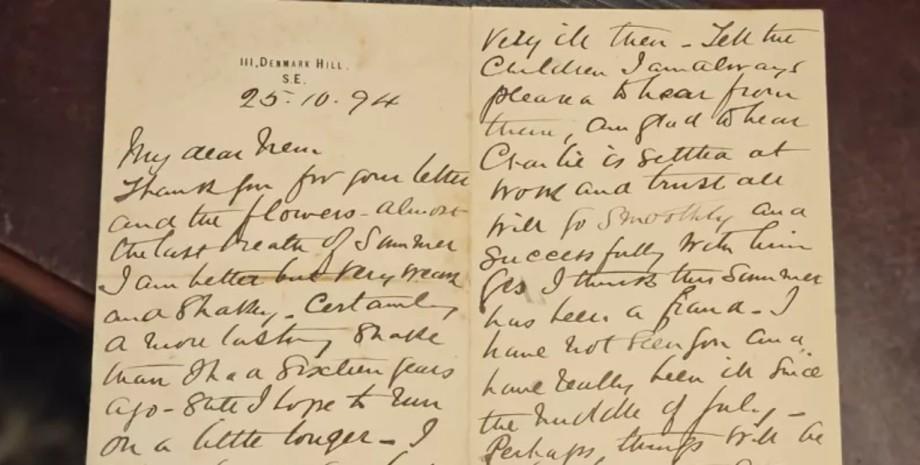 111, DENMARK HILL.
S.E.
25.10.94
My dear Nem
Thank you for your letter
and the flowers - almost
the last breath of Summer
I am better but very weak
and Shaky - Certainly
a more lasting Shake
than I had Sixteen years
ago - Still I hope to run
on a little longer - I
very ill then - Tell the
Children I am always
pleased to hear from
them, am glad to hear
Charlie is settled at
work and trust all
will go Smoothly and
successfully with him
Yes I think this Summer
has been a fraud - I
have not seen you and
have really been ill since
the middle of July -
Perhaps, things will be